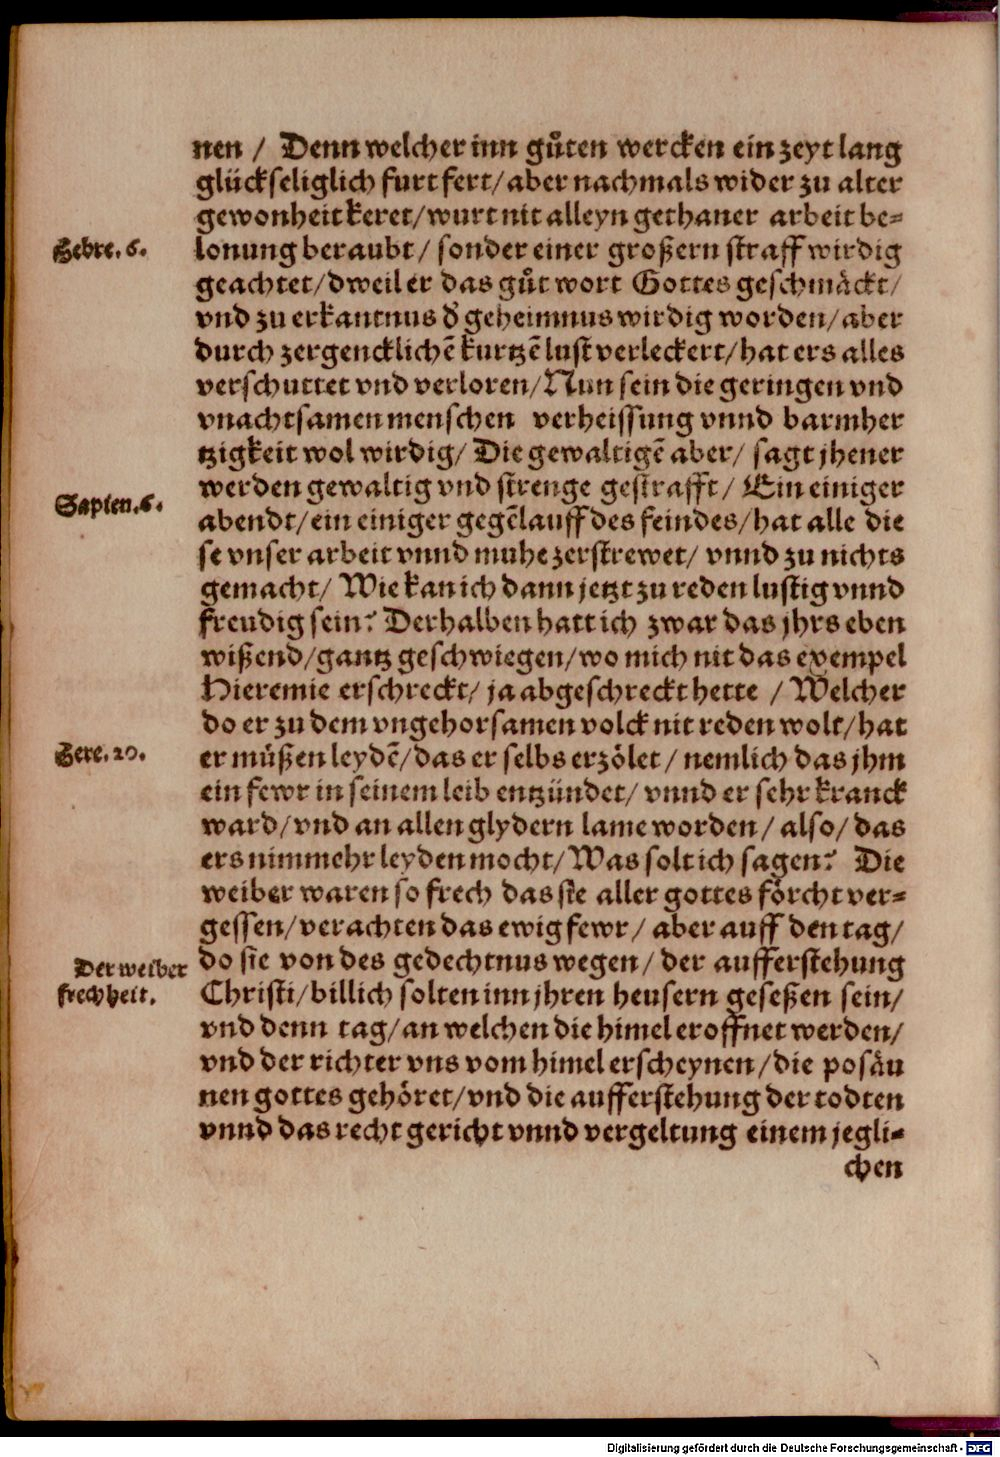 nen / Denn welcher inn gůten wercken ein zeyt lang
glückseliglich furt fert/ aber nachmals wider zu alter
gewonheit keret/ wurt nit alleyn gethaner arbeit be=
Hebre. 6.
lonung beraubt/ sonder einer großern straff wirdig
geachtet/ dweil er das gůt wort Gottes geschmäckt/
vnd zu erkantnus d̕ geheimnus wirdig worden/ aber
durch zergencklichẽ kurtzẽ lust verleckert/ hat ers alles
verschuttet vnd verloren/ Nun sein die geringen vnd
vnachtsamen menschen verheissung vnnd barmher
tzigkeit wol wirdig/ Die gewaltigẽ aber/ sagt jhener
Sapien. 6.
werden gewaltig vnd strenge gestrafft/ Ein einiger
abendt/ ein einiger gegẽlauff des feindes/ hat alle die
se vnser arbeit vnnd muhe zerstrewet/ vnnd zu nichts
gemacht/ Wie kan ich dann jetzt zu reden lustig vnnd
freudig sein? Derhalben hatt ich zwar das jhrs eben
wißend/ gantz geschwiegen/ wo mich nit das exempel
Hieremie erschreckt/ ja abgeschreckt hette / Welcher
do er zu dem vngehorsamen volck nit reden wolt/ hat
Jere. 20.
er můßen leydẽ/ das er selbs erzölet/ nemlich das jhm
ein fewr in seinem leib entzündet/ vnnd er sehr kranck
ward/ vnd an allen glydern lame worden/ also/ das
ers nimmehr leyden mocht/ Was solt ich sagen? Die
weiber waren so frech das sie aller gottes förcht ver=
gessen/ verachten das ewig fewr/ aber auff den tag/
Der weiber
frechheit.
do sie von des gedechtnus wegen/ der aufferstehung
Christi/ billich solten inn jhren heusern geseßen sein/
vnd denn tag/ an welchen die himel eroffnet werden/
vnd der richter vns vom himel erscheynen/ die posäu
nen gottes gehöret/ vnd die aufferstehung der todten
vnnd das recht gericht vnnd vergeltung einem jegli=
chen
Digitalisierung gefördert durch die Deutsche Forschungsgemeinschaft - DFG